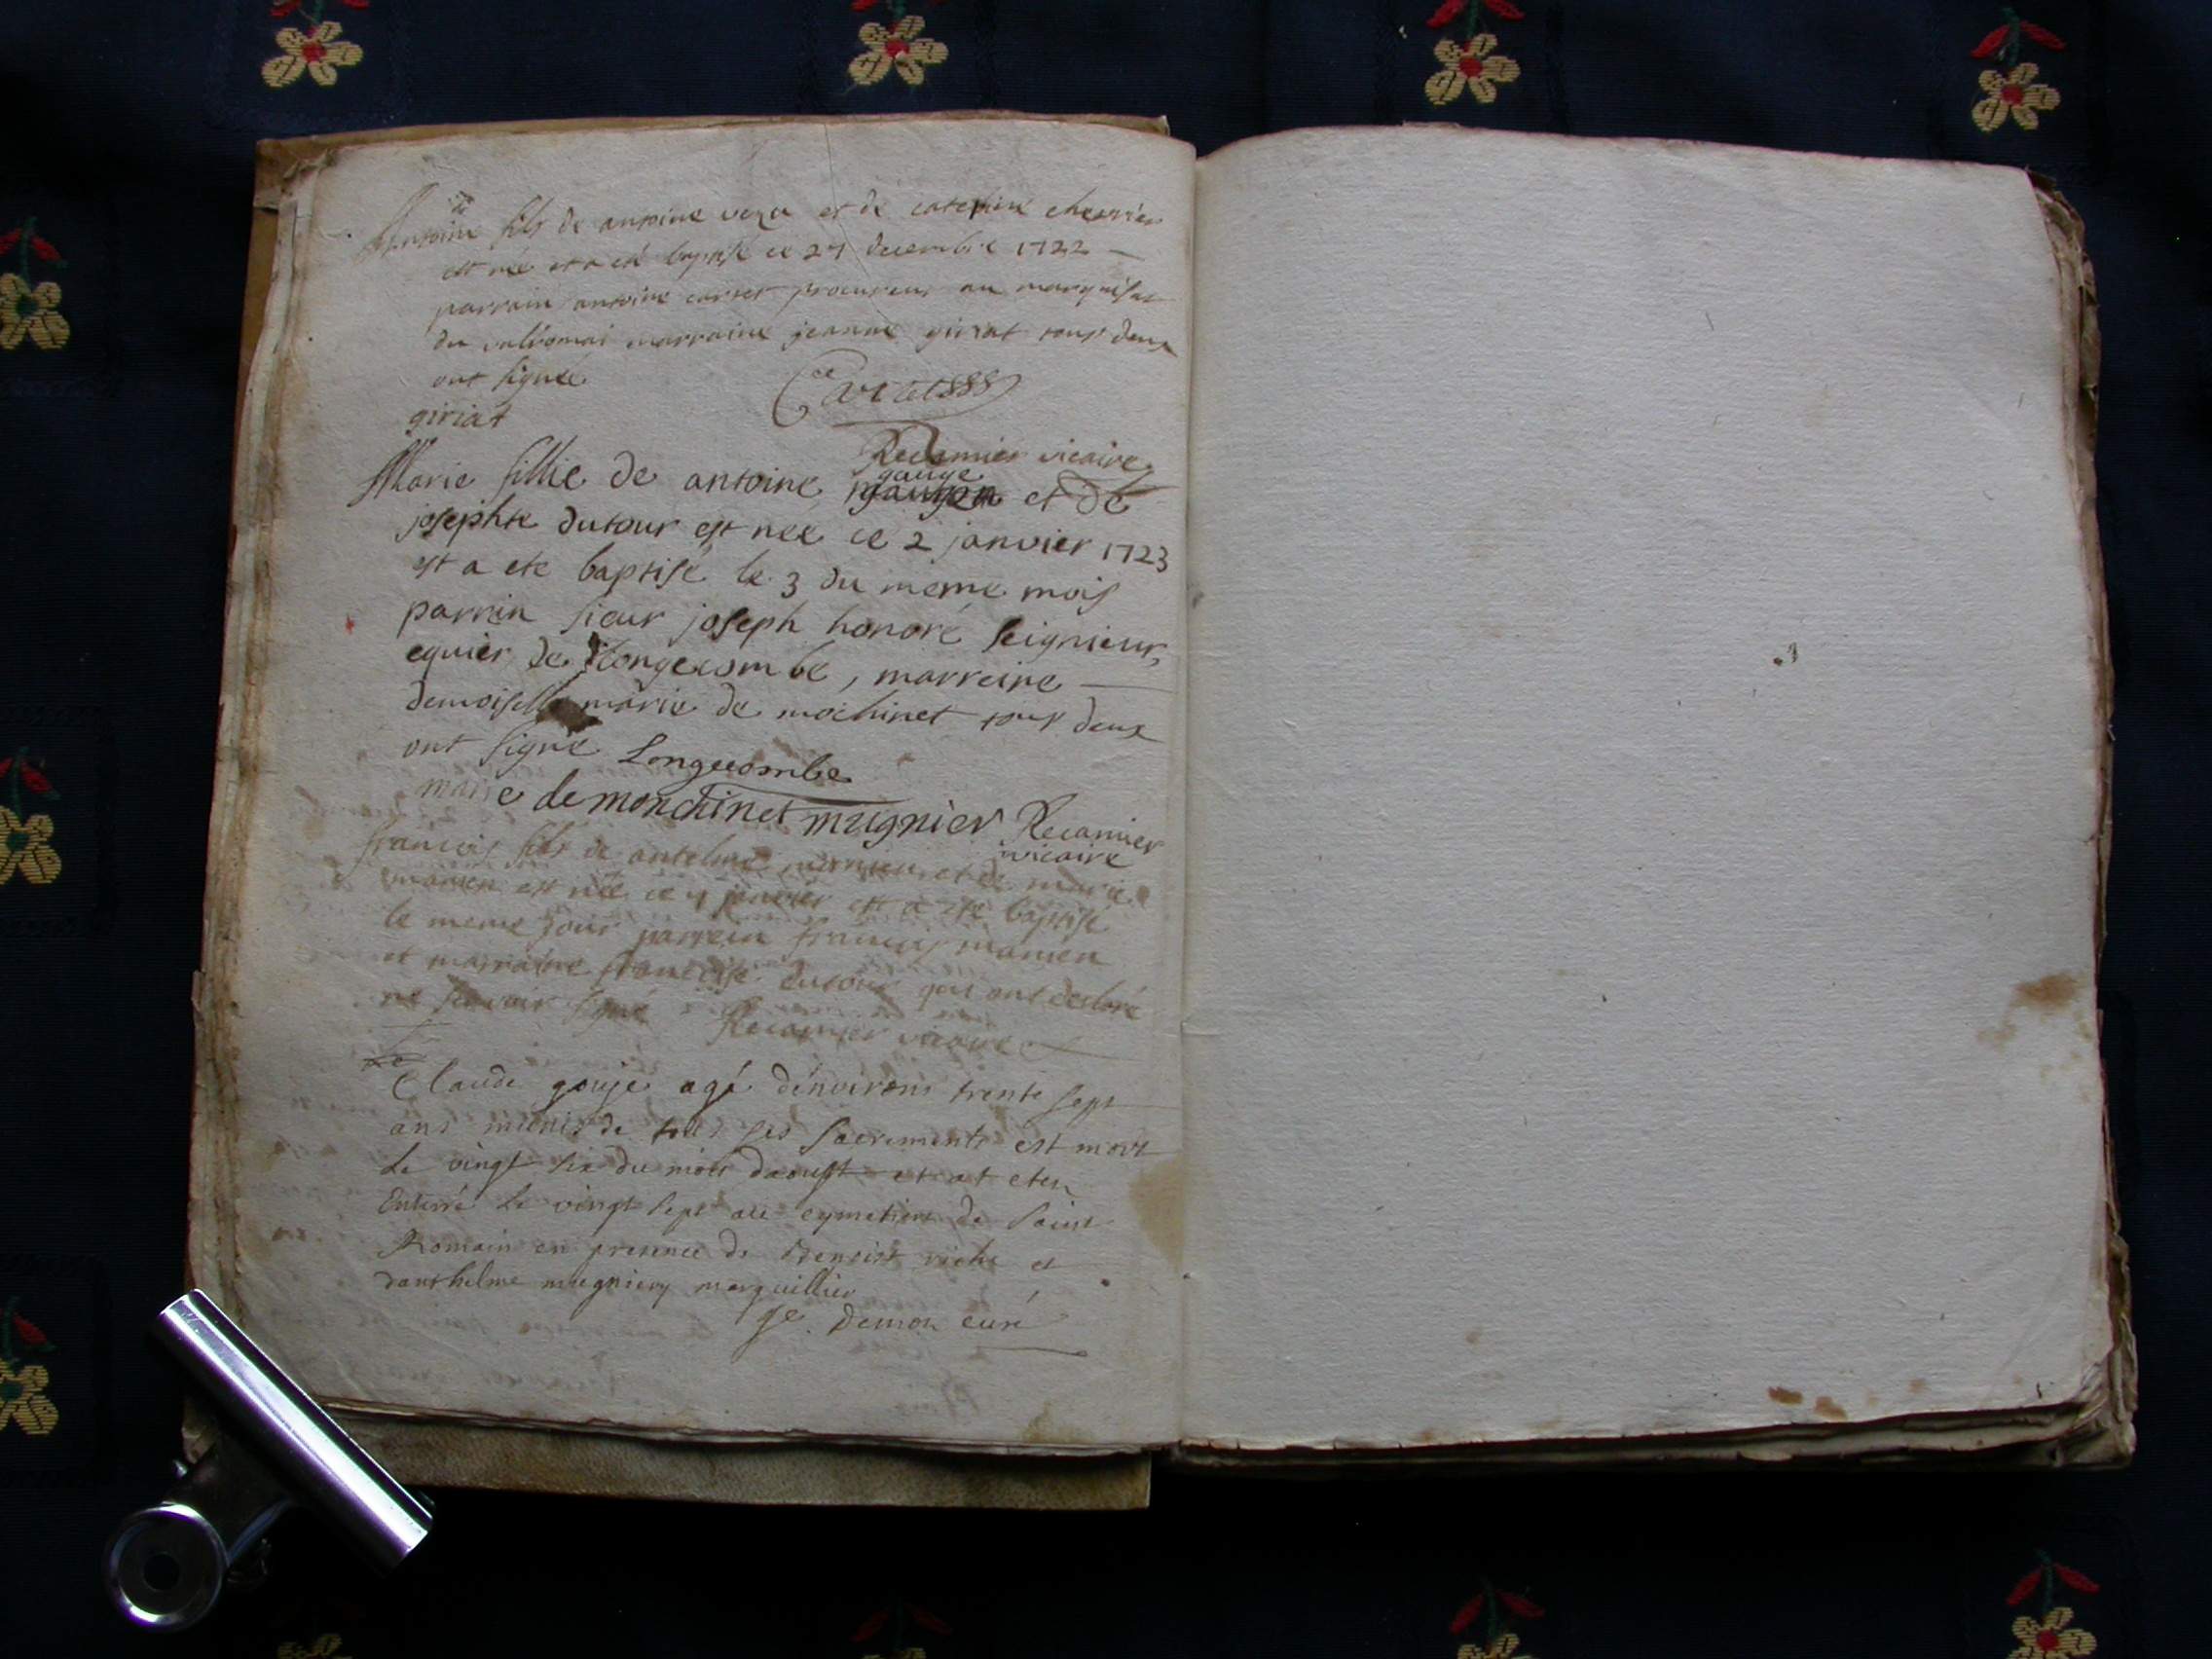 Antoine fils de antoine veza et de caterine chevrier
est née et a eté baptisé ce 27 decembre 1722
parrain antoine carret procureur au marquisat
du valromai marraine jeanne giriat tous deux
ont signée
giriat
Recamier vicaire
gauge
Marie fillie de antoine et de
josephte dutour est nee ce 2 janvier 1723
est a ete baptisé le 3 du meme mois
parrein sieur joseph honoré seignieur,
equier de longecombe, marreine
demoiselle marie de mochinet tous deux
ont signé Longecombe
marie de monchinet mugnier Recamier
vicaire
francois fils de antelme et de marie
manien est née ce 4 janvier est a ete baptisé
le meme jour parrein francois manien
et marraine francoise dutour qui ont desloré
ne scavoir signé Recamier vicaire
Claude gouje agé denvirons trente sept
ans munis de tous ses sacrements est mort
Le vingt six du mois daoust et at eteu
Enterré le vingt sept au cymetiere de saint
Romain en presence de Benoist riche et
danthelme mugniery marguillier
Demon curé